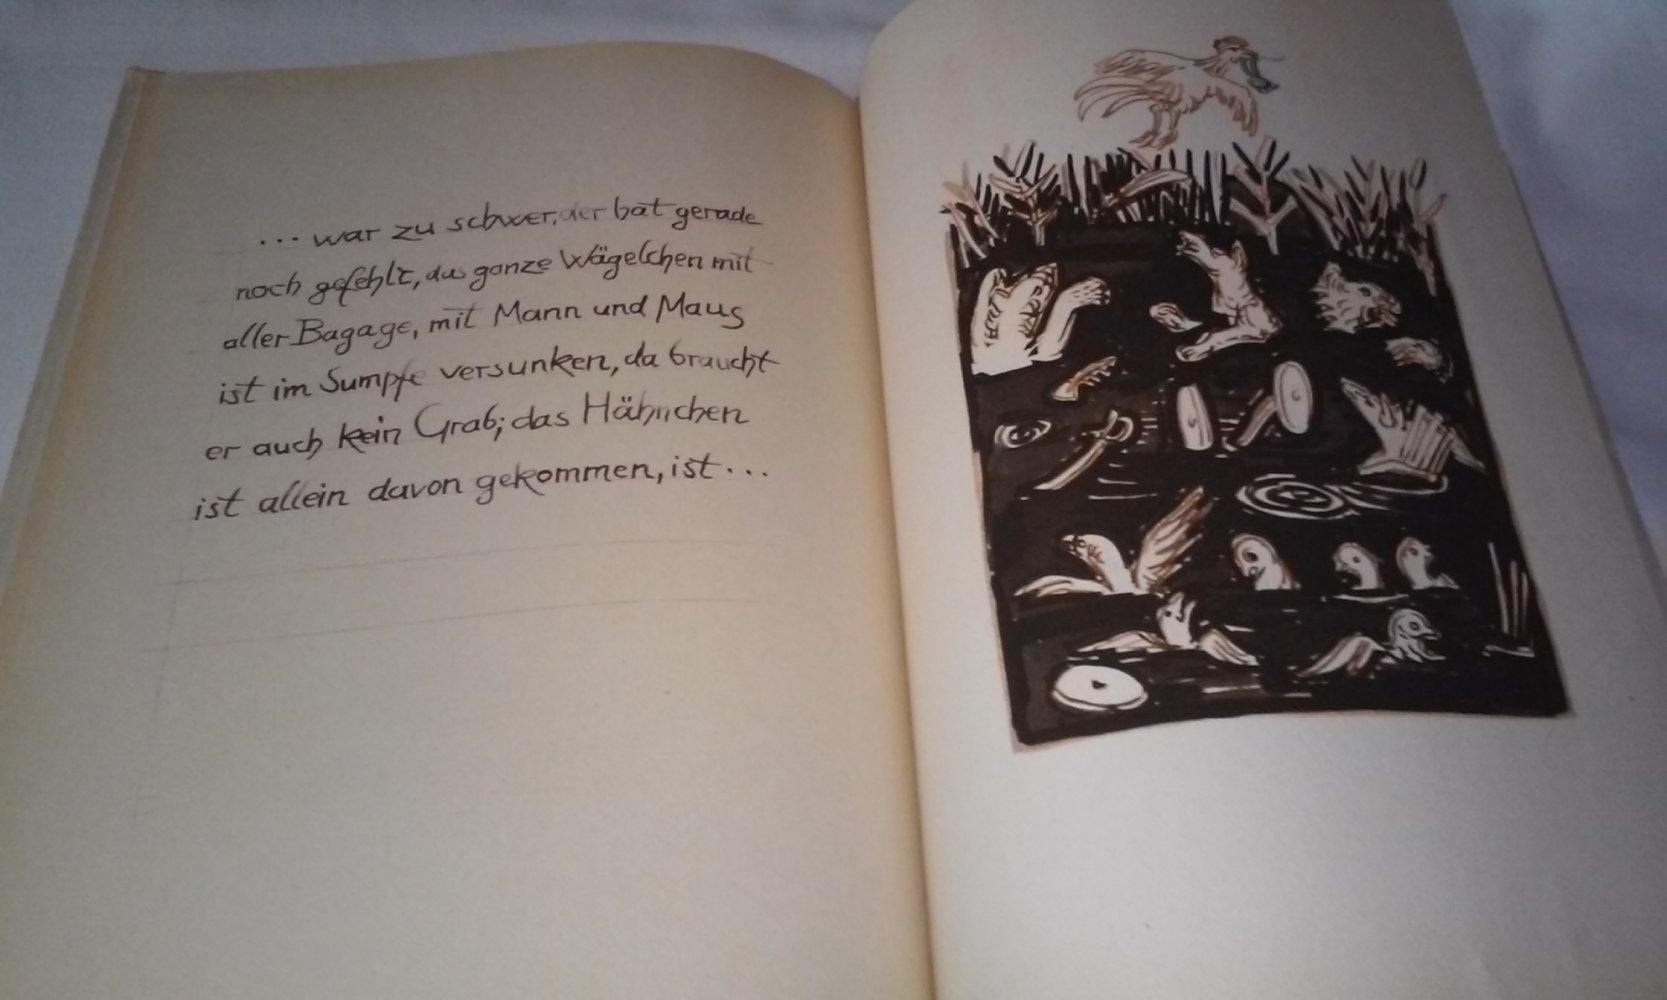 ... war zu schwer, der hat gerade
noch gefehlt, das ganze Wägelchen mit
aller Bagage, mit Mann und Maus
ist im Sumpfe versunken, da braucht
er auch kein Grab; das Hähnchen
ist allein davon gekommen, ist ...